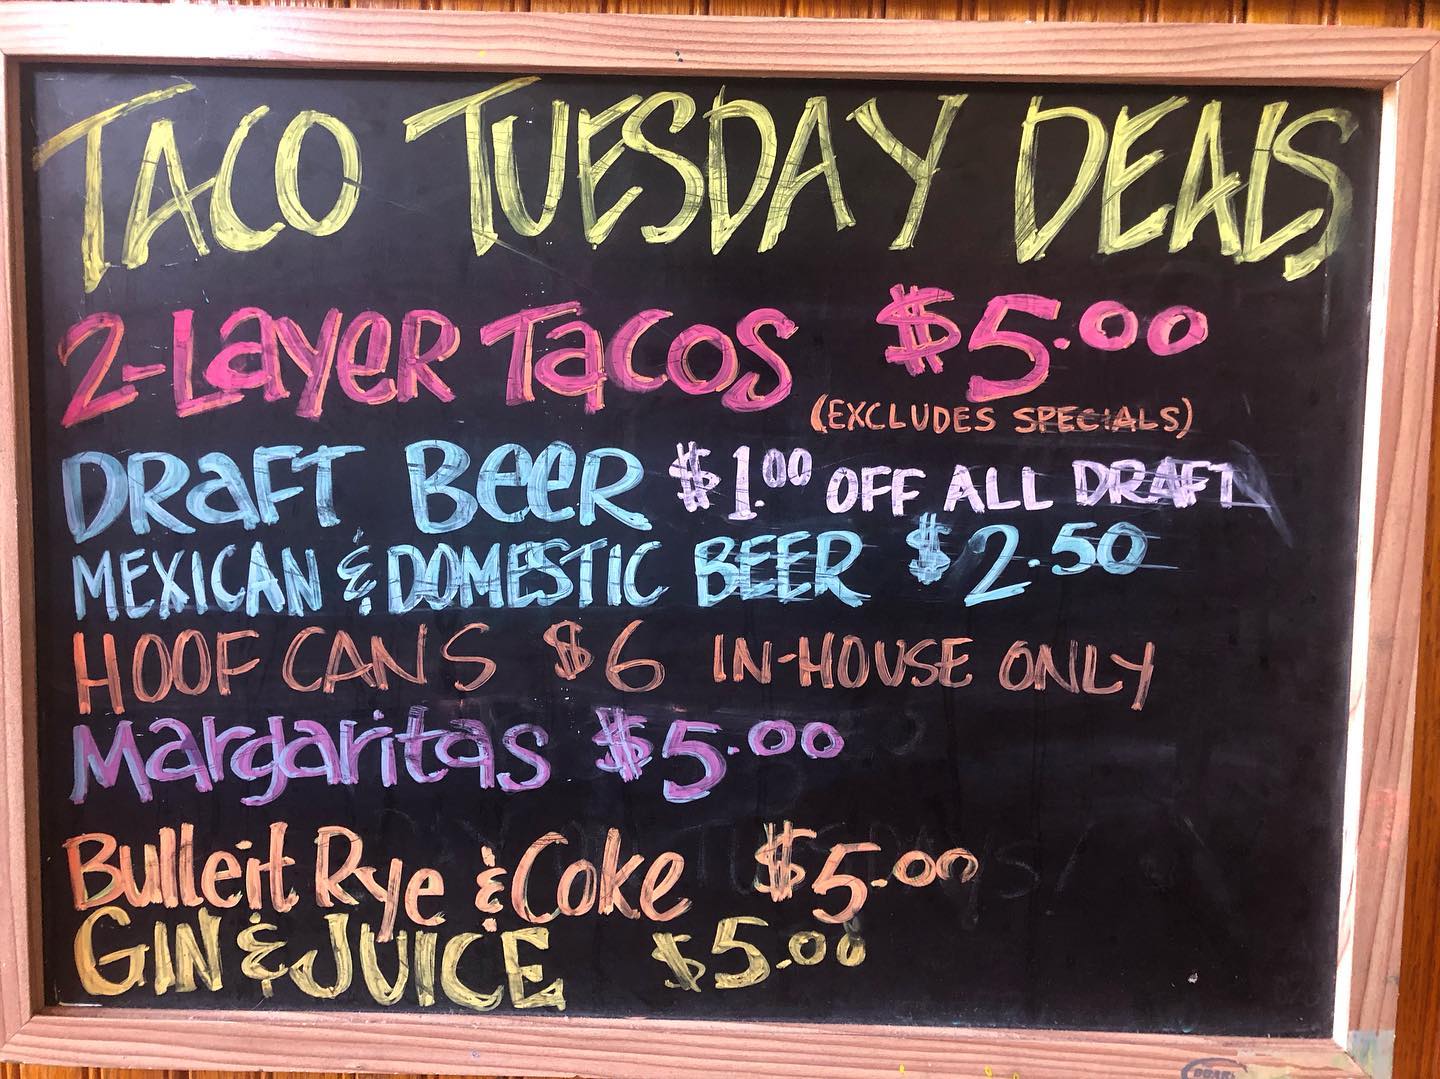 TACO TUESDAY DEALS
2-LAYER TACOS $5.00
(EXCLUDES SPECIALS)
DRAFT BEER $1.00 OFF ALL DRAFT
MEXICAN & DOMESTIC BEER $2.50
HOOF CANS $6 IN-HOUSE ONLY
Margaritas $5.00
Bulleit Rye & Coke $5.00
GIN & JUICE $5.00